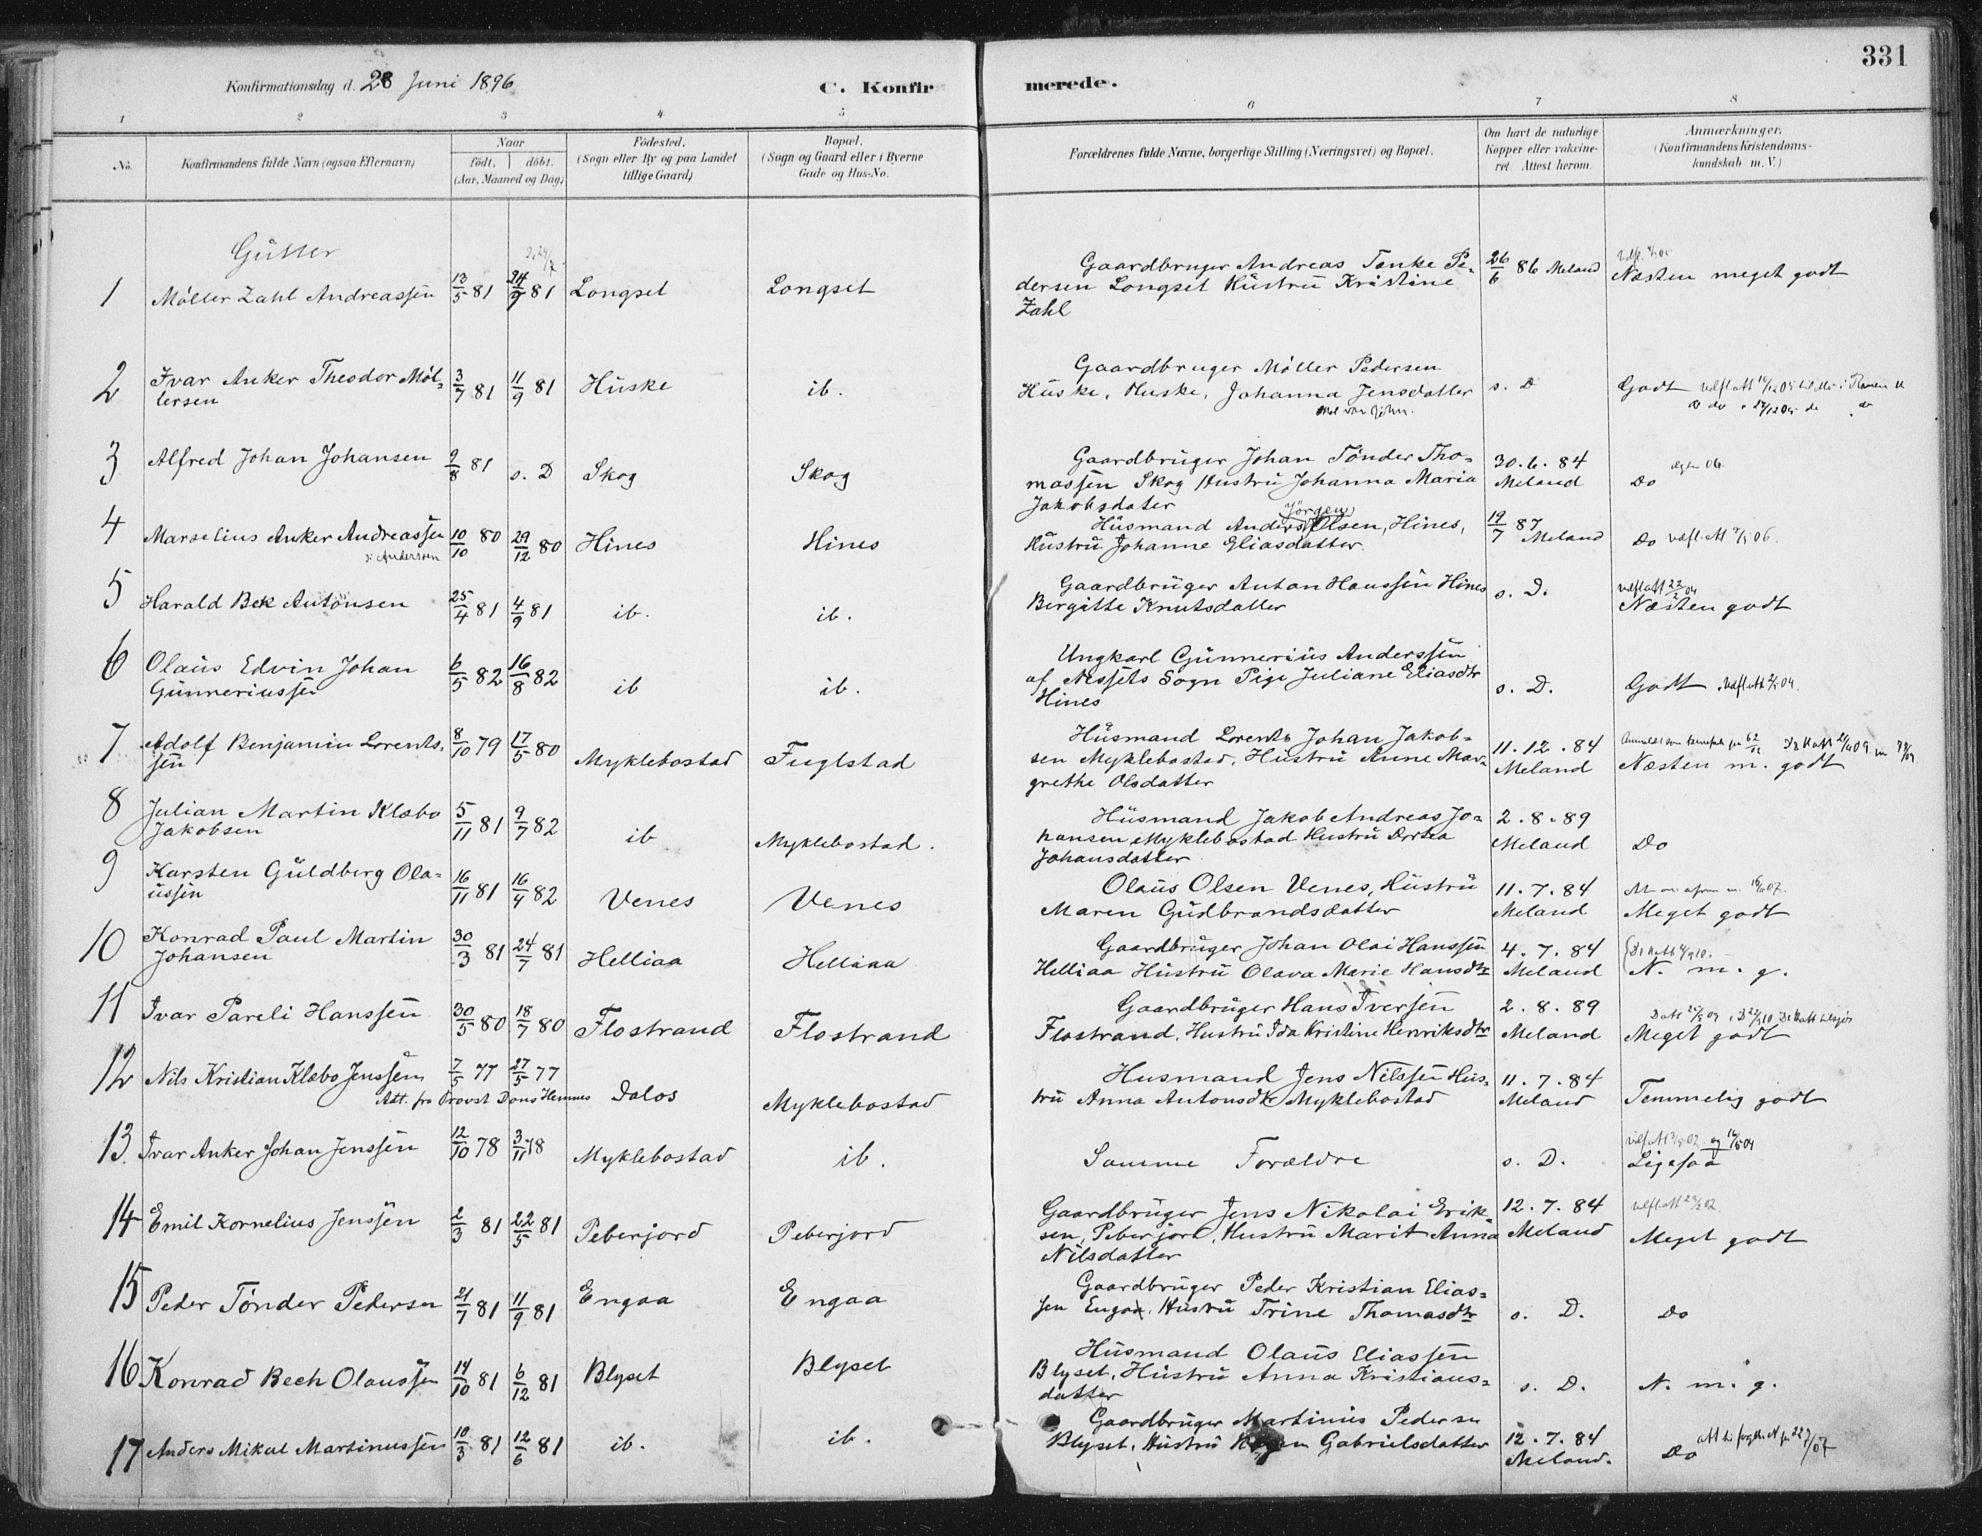 331
Konfirmationsdag d. 28 Juni 1896
C. Konfirmerede.
1 2 3 4 5 6 7 8
No.
Konfirmandens fulde Navn (ogsaa Efternavn)
Naar
födt. döbt.
(Aar, Maaned og Dag)
Födested.
(Sogn eller By og paa Landet
tillige Gaard)
Bopæl.
(Sogn og Gaard eller i Byerne
Gade og Hus-No.
Forældrenes fulde Navne, borgerlige Stilling (Næringsvei) og Bopæl.
Om havt de naturlige
Kopper eller vakcine-
ret. Attest herom.
Anmærkninger.
(Konfirmandens Kristendoms-
kundskab m. V.)
Gutter
1 Møller Zahl Andreassen 13/5 81 24/9 81 Longset Longset
Gaardbruger Andreas Tanke Pe-
dersen Longset Hustru Kristine
Zahl
26/6 86 Meland Næsten meget godt
2 Ivar Anker Theodor Møl-
lersen 3/7 81 11/9 81 Huske ib.
Gaardbruger Møller Pedersen
Huske, Huske, Johanna Jensdatter
s. D Godt
3 Alfred Johan Johansen 9/8 81 s. D Skog Skog
Gaardbruger Johan Tönder Tho-
massen Skog Hustru Johanna Maria
Jakobsdater
30.6.84
Meland Do
4 Marselius Anker Andreassen 10/10 80 29/12 80 Hines Hines
Andersen
Jörgen
Husmand Anders Olsen, Hines,
Hustru Johanne Eliasdatter.
19/7 87 Meland Do
5 Harald Bek Antonsen 25/4 81 4/9 81 ib. ib.
Gaardbruger Anton Hanssen Hines
Bergitte Knutsdatter
s. D. Næsten godt
6 Olaus Edvin Johan
Gunneriussen 6/5 82 16/8 82 ib ib.
Ungkarl Gunnerius Anderssen
af Nessets Sogn Pige Juliane Eliasdtr
Hines
s. D. Godt
7 Adolf Benjamin Lorents-
sen 8/10 79 17/5 80 Myklebostad Fuglstad
Husmand Lorents Johan Jakob-
sen Myklebostad, Hustru Anne Mar-
grethe Olsdatter
11.12.84
Meland Næsten m. godt
8 Julian Martin Klæbo
Jakobsen 5/11 81 9/7 82 ib Myklebostad.
Husmand Jakob Andreas Jo-
hansen Myklebostad Hustru Dortea
Johansdatter
2.8.89
Meland Do
9 Karsten Guldberg Ola-
ussen 16/11 81 16/4 82 Venes Venes
Olaus Olsen Venes, Hustru
Maren Gudbrandsdatter
11.7.84
Meland Meget godt
10 Konrad Paul Martin
Johansen 30/3 81 24/7 81 Helliaa Helliaa
Gaardbruger Johan Olai Hanssen
Helliaa Hustru Olava Marie Hansdtr
4.7.84
Meland N. m. g.
11 Ivar Pareli Hanssen 30/5 80 18/7 80 Flostrand Flostrand
Gaardbruger Hans Iversen
Flostrand, Hustru Ida Kristine Henriksdtr
2.8.89
Meland Meget godt
12 Nils Kristian Klæbo Jenssen 7/5 77 27/5 77 Dalos Myklebostad
Att. fra Provst Dons Hemnes
Husmand Jens Nilssen Hus-
tru Anna Antonsdtr Myklebostad
11.7.84
Meland Temmelig godt
13. Ivar Anker Johan Jenssen 12/10 78 3/11 78 Myklebostad ib.
Samme Forældre s. D. Ligesaa
14 Emil Kornelius Jenssen 2/3 81 22/5 81 Peberjord Peberjord
Gaardbruger Jens Nikolai Erik-
sen, Peberjord, Hustru Marit Anna
Nilsdatter
12.7.84
Meland Meget godt
15 Peder Tönder Pedersen 21/7 81 11/9 81 Engaa Engaa
Gaardbruger Peder Kristian Elias-
sen Engaa, Hustru Trine Thomasdtr
s. D. Do
16 Konrad Bech Olaussen 14/10 81 6/12 81 Blyset Blyset
Husmand Olaus Eliassen
Blyset, Hustru Anna Kristians-
datter
s. D. N. m. g.
17 Anders Mikal Martinussen 10/3 81 12/6 81 ib. ib.
Gaardbruger Martinus Pedersen
Blyset, Hustru Gabrielsdatter
12.7.84
Meland. Do